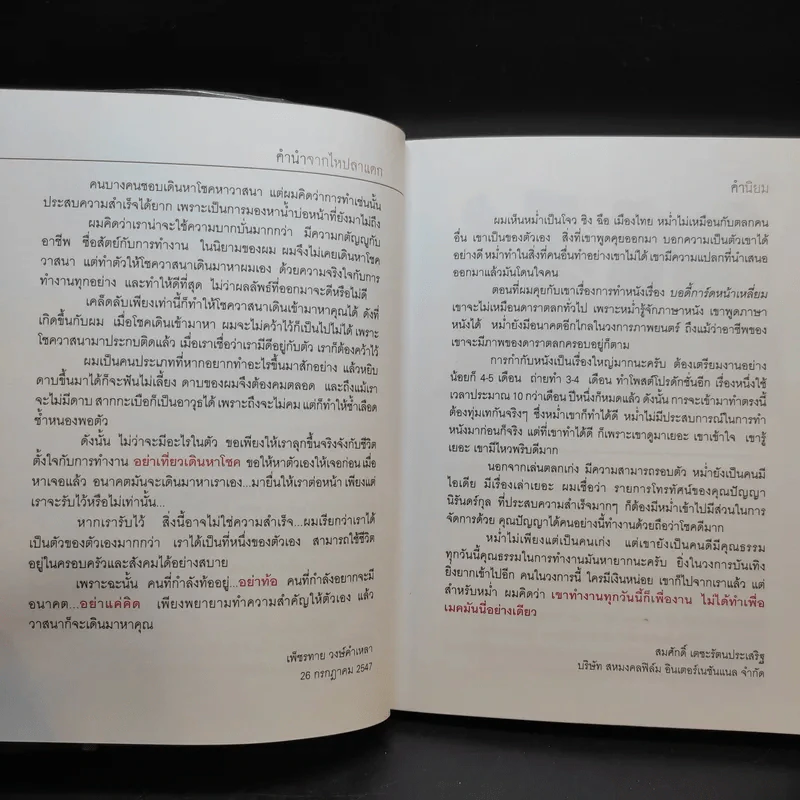 คำนำจากไหปลาแดก
คนบางคนชอบเดินหาโชคหาวาสนา แต่ผมคิดว่าการทำเช่นนั้น
ประสบความสำเร็จได้ยาก เพราะเป็นการมองหาน้ำบ่อหน้าที่ยังมาไม่ถึง
ผมคิดว่าเราน่าจะใช้ความบากบั่นมากกว่า มีความกตัญญูกับ
อาชีพ ซื่อสัตย์กับการทำงาน ในนิยามของผม ผมจึงไม่เคยเดินหาโชค
วาสนา แต่ทำตัวให้โชควาสนาเดินมาหาผมเอง ด้วยความจริงใจกับการ
ทำงานทุกอย่าง และทำให้ดีที่สุด ไม่ว่าผลลัพธ์ที่ออกมาจะดีหรือไม่ดี
เคล็ดลับเพียงเท่านี้ก็ทำให้โชควาสนาเดินเข้ามาหาคุณได้ ดังที่
เกิดขึ้นกับผม เมื่อโชคเดินเข้ามาหา ผมจะไม่คว้าไว้ก็เป็นไปไม่ได้ เพราะ
โชควาสนามาประกบติดแล้ว เมื่อเราเชื่อว่าเรามีดีอยู่กับตัว เราก็ต้องคว้าไว้
ผมเป็นคนประเภทที่หากอยากทำอะไรขึ้นมาสักอย่าง แล้วหยิบ
ดาบขึ้นมาได้ก็จะฟันไม่เลี้ยง ดาบของผมจึงต้องคมตลอด และถึงแม้เรา
จะไม่มีดาบ สากกะเบือก็เป็นอาวุธได้ เพราะถึงจะไม่คม แต่ก็ทำให้ช้ำเลือด
ช้ำหนองพอตัว
ดังนั้น ไม่ว่าจะมีอะไรในตัว ขอเพียงให้เราลุกขึ้นจริงจังกับชีวิต
ตั้งใจกับการทำงาน อย่าเที่ยวเดินหาโชค ขอให้หาตัวเองให้เจอก่อน เมื่อ
หาเจอแล้ว อนาคตมันจะเดินมาหาเราเอง...มายื่นให้เราต่อหน้า เพียงแต่
เราจะรับไว้หรือไม่เท่านั้น...
หากเรารับไว้ สิ่งนี้อาจไม่ใช่ความสำเร็จ...ผมเรียกว่าเราได้
เป็นตัวของตัวเองมากกว่า เราได้เป็นที่หนึ่งของตัวเอง สามารถใช้ชีวิต
อยู่ในครอบครัวและสังคมได้อย่างสบาย
เพราะฉะนั้น คนที่กำลังท้ออยู่...อย่าท้อ คนที่กำลังอยากจะมี
อนาคต...อย่าแค่คิด เพียงพยายามทำความสำคัญให้ตัวเอง แล้ว
วาสนาก็จะเดินมาหาคุณ
เพ็ชรทาย วงษ์คำเหลา
26 กรกฎาคม 2547
คำนิยม
ผมเห็นหม่ำเป็นโจว ซิง ฉือ เมืองไทย หม่ำไม่เหมือนกับตลกคน
อื่น เขาเป็นของตัวเอง สิ่งที่เขาพูดคุยออกมา บอกความเป็นตัวเขาได้
อย่างดี หม่ำทำในสิ่งที่คนอื่นทำอย่างเขาไม่ได้ เขามีความแปลกที่นำเสนอ
ออกมาแล้วมันโดนใจคน
ตอนที่ผมคุยกับเขาเรื่องการทำหนังเรื่อง บอดี้การ์ดหน้าเหลี่ยม
เขาจะไม่เหมือนดาราตลกทั่วไป เพราะหม่ำรู้จักภาษาหนัง เขาพูดภาษา
หนังได้ หม่ำยังมีอนาคตอีกไกลในวงการภาพยนตร์ ถึงแม้ว่าอาชีพของ
เขาจะมีภาพของดาราตลกครอบอยู่ก็ตาม
การกำกับหนังเป็นเรื่องใหญ่มากนะครับ ต้องเตรียมงานอย่าง
น้อยก็ 4-5 เดือน ถ่ายทำ 3-4 เดือน ทำโพสต์โปรดักชั่นอีก เรื่องหนึ่งใช้
เวลาประมาณ 10 กว่าเดือน ปีหนึ่งก็หมดแล้ว ดังนั้น การจะเข้ามาทำตรงนี้
ต้องทุ่มเทกันจริงๆ ซึ่งหม่ำเขาก็ทำได้ดี หม่ำไม่มีประสบการณ์ในการทำ
หนังมาก่อนก็จริง แต่ที่เขาทำได้ดี ก็เพราะเขาดูมาเยอะ เขาเข้าใจ เขารู้
เยอะ เขามีไหวพริบดีมาก
นอกจากเล่นตลกเก่ง มีความสามารถรอบตัว หม่ำยังเป็นคนมี
ไอเดีย มีเรื่องเล่าเยอะ ผมเชื่อว่า รายการโทรทัศน์ของคุณปัญญา
นิรันดร์กุล ที่ประสบความสำเร็จมากๆ ก็ต้องมีหม่ำเข้าไปมีส่วนในการ
จัดการด้วย คุณปัญญาได้คนอย่างนี้มาทำงานด้วยถือว่าโชคดีมาก
หม่ำไม่เพียงแต่เป็นคนเก่ง แต่เขายังเป็นคนดีมีคุณธรรม
ทุกวันนี้คุณธรรมในการทำงานมันหายากนะครับ ยิ่งในวงการบันเทิง
ยิ่งยากเข้าไปอีก คนในวงการนี้ ใครมีเงินหน่อย เขาก็ไปจากเราแล้ว แต่
สำหรับหม่ำ ผมคิดว่า เขาทำงานทุกวันนี้ก็เพื่องาน ไม่ได้ทำเพื่อ
เมคมันนี่อย่างเดียว
สมศักดิ์ เตชะรัตนประเสริฐ
บริษัท สหมงคลฟิล์ม อินเตอร์เนชั่นแนล จำกัด